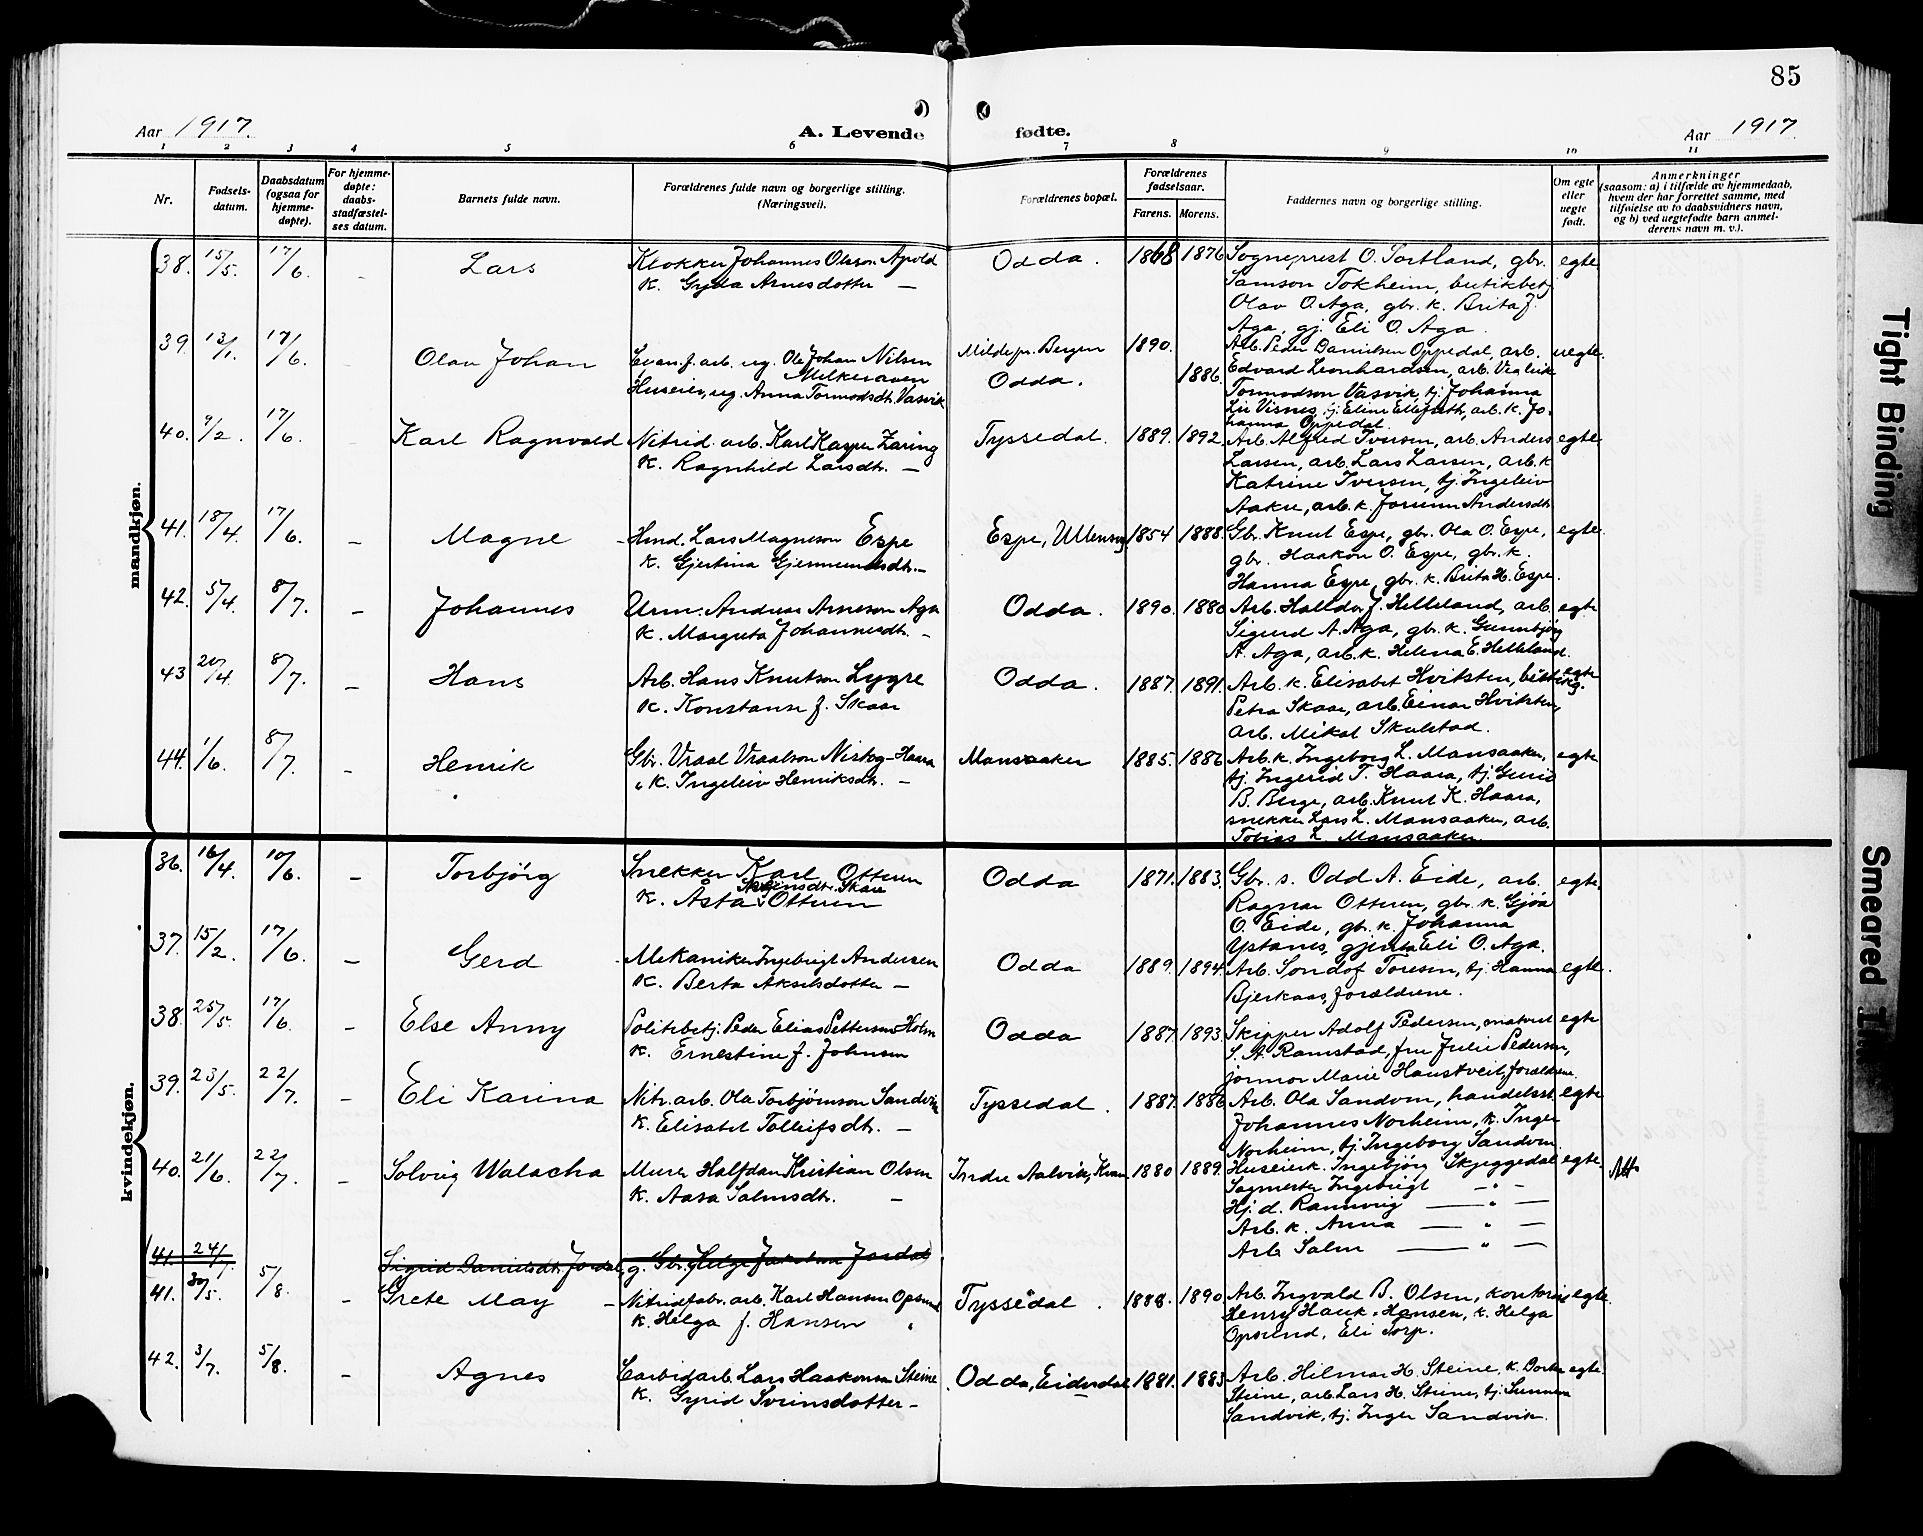 85
Aar 1917.
A. Levende fødte.
Aar 1917.
1 2 3 4 5 6 7 8 9 10 11
Nr.
Fødsels-
datum.
Daabsdatum
(ogsaa for
hjemme-
døpte).
For hjemme-
døpte:
daabs-
stadfæstel-
ses datum.
Barnets fulde navn.
Forældrenes fulde navn og borgerlige stilling.
(Næringsvei).
Forældrenes bopæl.
Forældrenes
fødselsaar.
Farens. Morens.
Faddernes navn og borgerlige stilling.
Om egte
eller
uegte
født.
Anmerkninger
(saasom: a) i tilfælde av hjemmedaab,
hvem der har forrettet samme, med
tilføielse av to daabsvidners navn,
og b) ved uegtefødte barn anmel-
derens navn m. v.).
mandkjøn.
38. 15/5. 17/6. - Lars
Klokker Johannes Olsson Apold
K. Gyda Arnesdotter —
Odda. 1868 1876
Sogneprest O. Sortland, gbr.
Samson Tokheim, butikbetj.
Olav O. Aga, gbr. k. Brita J.
Aga, gj. Eli O. Aga.
egte
39. 13/1. 17/6. Olav Johan
Evan. f. arb. ug. Ole Johan Nilsen
Milkeraaen
Huseier, ug. Anna Tormodsdt. Vasvik
Milde pr. Bergen 1890.
Odda. 1886.
Arb. Peder Danielsen Oppedal, arb.
Edvard Leonhardsen, arb. Vigleik
Tormodson Vasvik, tj. Johanna
Lie Visnes, tj. Eline Ellefseth, arb. k. Jo-
hanna Oppedal.
uegte.
40. 9/2. 17/6. Karl Ragnvald
Nitrid. arb. Karl Kasper Zaring
K. Ragnhild Larsdt. —
Tyssedal. 1889. 1892.
Arb. Alfred Iversen, arb. Anders
Larsen, arb. Lars Larsen, arb. k.
Katrine Iversen, tj. Ingeleiv
Aakre, arb. k. Jorunn Andersdt.
egte
41. 18/4. 17/6. - Magne
Hmd. Lars Magneson Espe
K. Gjertina Gjermundsdt. —
Espe, Ullensvg. 1854 1888.
Gbr. Knut Espe, gbr. Ola O. Espe,
gbr. Haakon O. Espe, gbr. k.
Hanna Espe, gbr. k. Brita H. Espe.
egte.
42. 5/4. 8/7. - Johannes
Urm. Andreas Arneson Aga
K. Margreta Johannesdt. —
Odda. 1890. 1880
Arb. Halldor J. Helleland, arb.
Sigurd A. Aga, gbr. k. Gunnbjørg
A. Aga, arb. k. Helena E. Helleland.
egte
43 20/4. 8/7. - Hans
Arb. Hans Knutson Lygre
K. Konstanse f. Skaar
Odda. 1887. 1891.
Arb. k. Elisabet Hvitsten,
Petra Skaar, arb. Einar Hvitsten,
arb. Mikal Skulstad.
egte
44. 1/6. 8/7. - Henrik
Gbr. Vraal Vraalson Nisteg-Haara
K. Ingeleiv Henriksdt. —
Mansaaker 1885. 1886
Arb. k. Ingeborg L. Mansaaker,
tj. Ingerid T. Haara, tj. Guric
B. Berge, arb. Knut K. Haara,
snekker Lars L. Mansaaker, arb.
Tobias L. Mansaaker.
egte
kvindekjøn.
36. 16/4. 10/6. - Torbjörg
Snekker Karl Otteren
Sveinsdtr. Skare
K. Åsta Otteren
Odda 1871. 1883.
Gbr. s. Odd A. Eide, arb.
Ragnar Otteren, gbr. k. Gjöa
O. Eide, gbr. k. Johanna
Ystanes, gjenta Eli O. Aga.
egte.
37. 15/2. 17/6. - Gerd
Mekaniker Ingebrigt Andersen
K. Berta Akselsdotter —
Odda 1889. 1894.
Arb. Sondof Toresen, tj. Hanna
Bjerkaas, forældrene.
egte.
38. 25/5. 17/6. - Else Anny
Politibetj. Peder Elias Pettersen Holm
K. Ernestine f. Johnsen
Odda 1887. 1893.
Skipper Adolf Pedersen, matros
S. A. Ramstad, fru Julie Pedersen,
jormor Marie Haustveit, forældrene.
egte
39. 23/5. 22/7. - Eli Karina
Nitr. arb. Ola Torbjörnson Sandvin
K. Elisabet Tolleifsdt. —
Tyssedal. 1887. 1886
Arb. Ola Sandven, handelsst.
Johannes Norheim, k. Inger
Norheim, tj. Ingeborg Sandven.
egte
40. 21/6. 22/7. - Solveig Walacha
Murer Halfdan Kristian Olsen
K. Aasa Salmsdt. —
Indre Aalvik, Kvam. 1880 1889.
Huseierk. Ingebjörg Skjeggedal
Sagmester Ingebrigt — " —
Hj. d. Rannveig — " —
Arb. k. Anna — " —
Arb. Salm — " —
egte. Att.
41. 24/7. Sigrid Danielsdt. Jordal, g. Gbr. Helge Jakobsen Jordal
41. 30/5. 5/8. - Grete May
Nitridfabr. arb. Karl Hansen Opsund
K. Helga f. Hansen "
Tyssedal. 1888. 1890
Arb. Ingvald B. Olsen, kontorist
Henry Hauk-Hansen, k. Helga
Opsund, Eli Torp.
egte.
42. 3/7. 5/8. - Agnes
Carbidarb. Lars Haakonsen Steine
K. Gyrid Sveinsdotter —
Odda, Eidesdal 1881. 1883
Arb. Hilmar H. Steine, k. Dorte
Steine, arb. Lars H. Steine, tj. Sunneva
Sandvik, tj. Inger Sandvik.
egte.
Tight Binding
Smeared